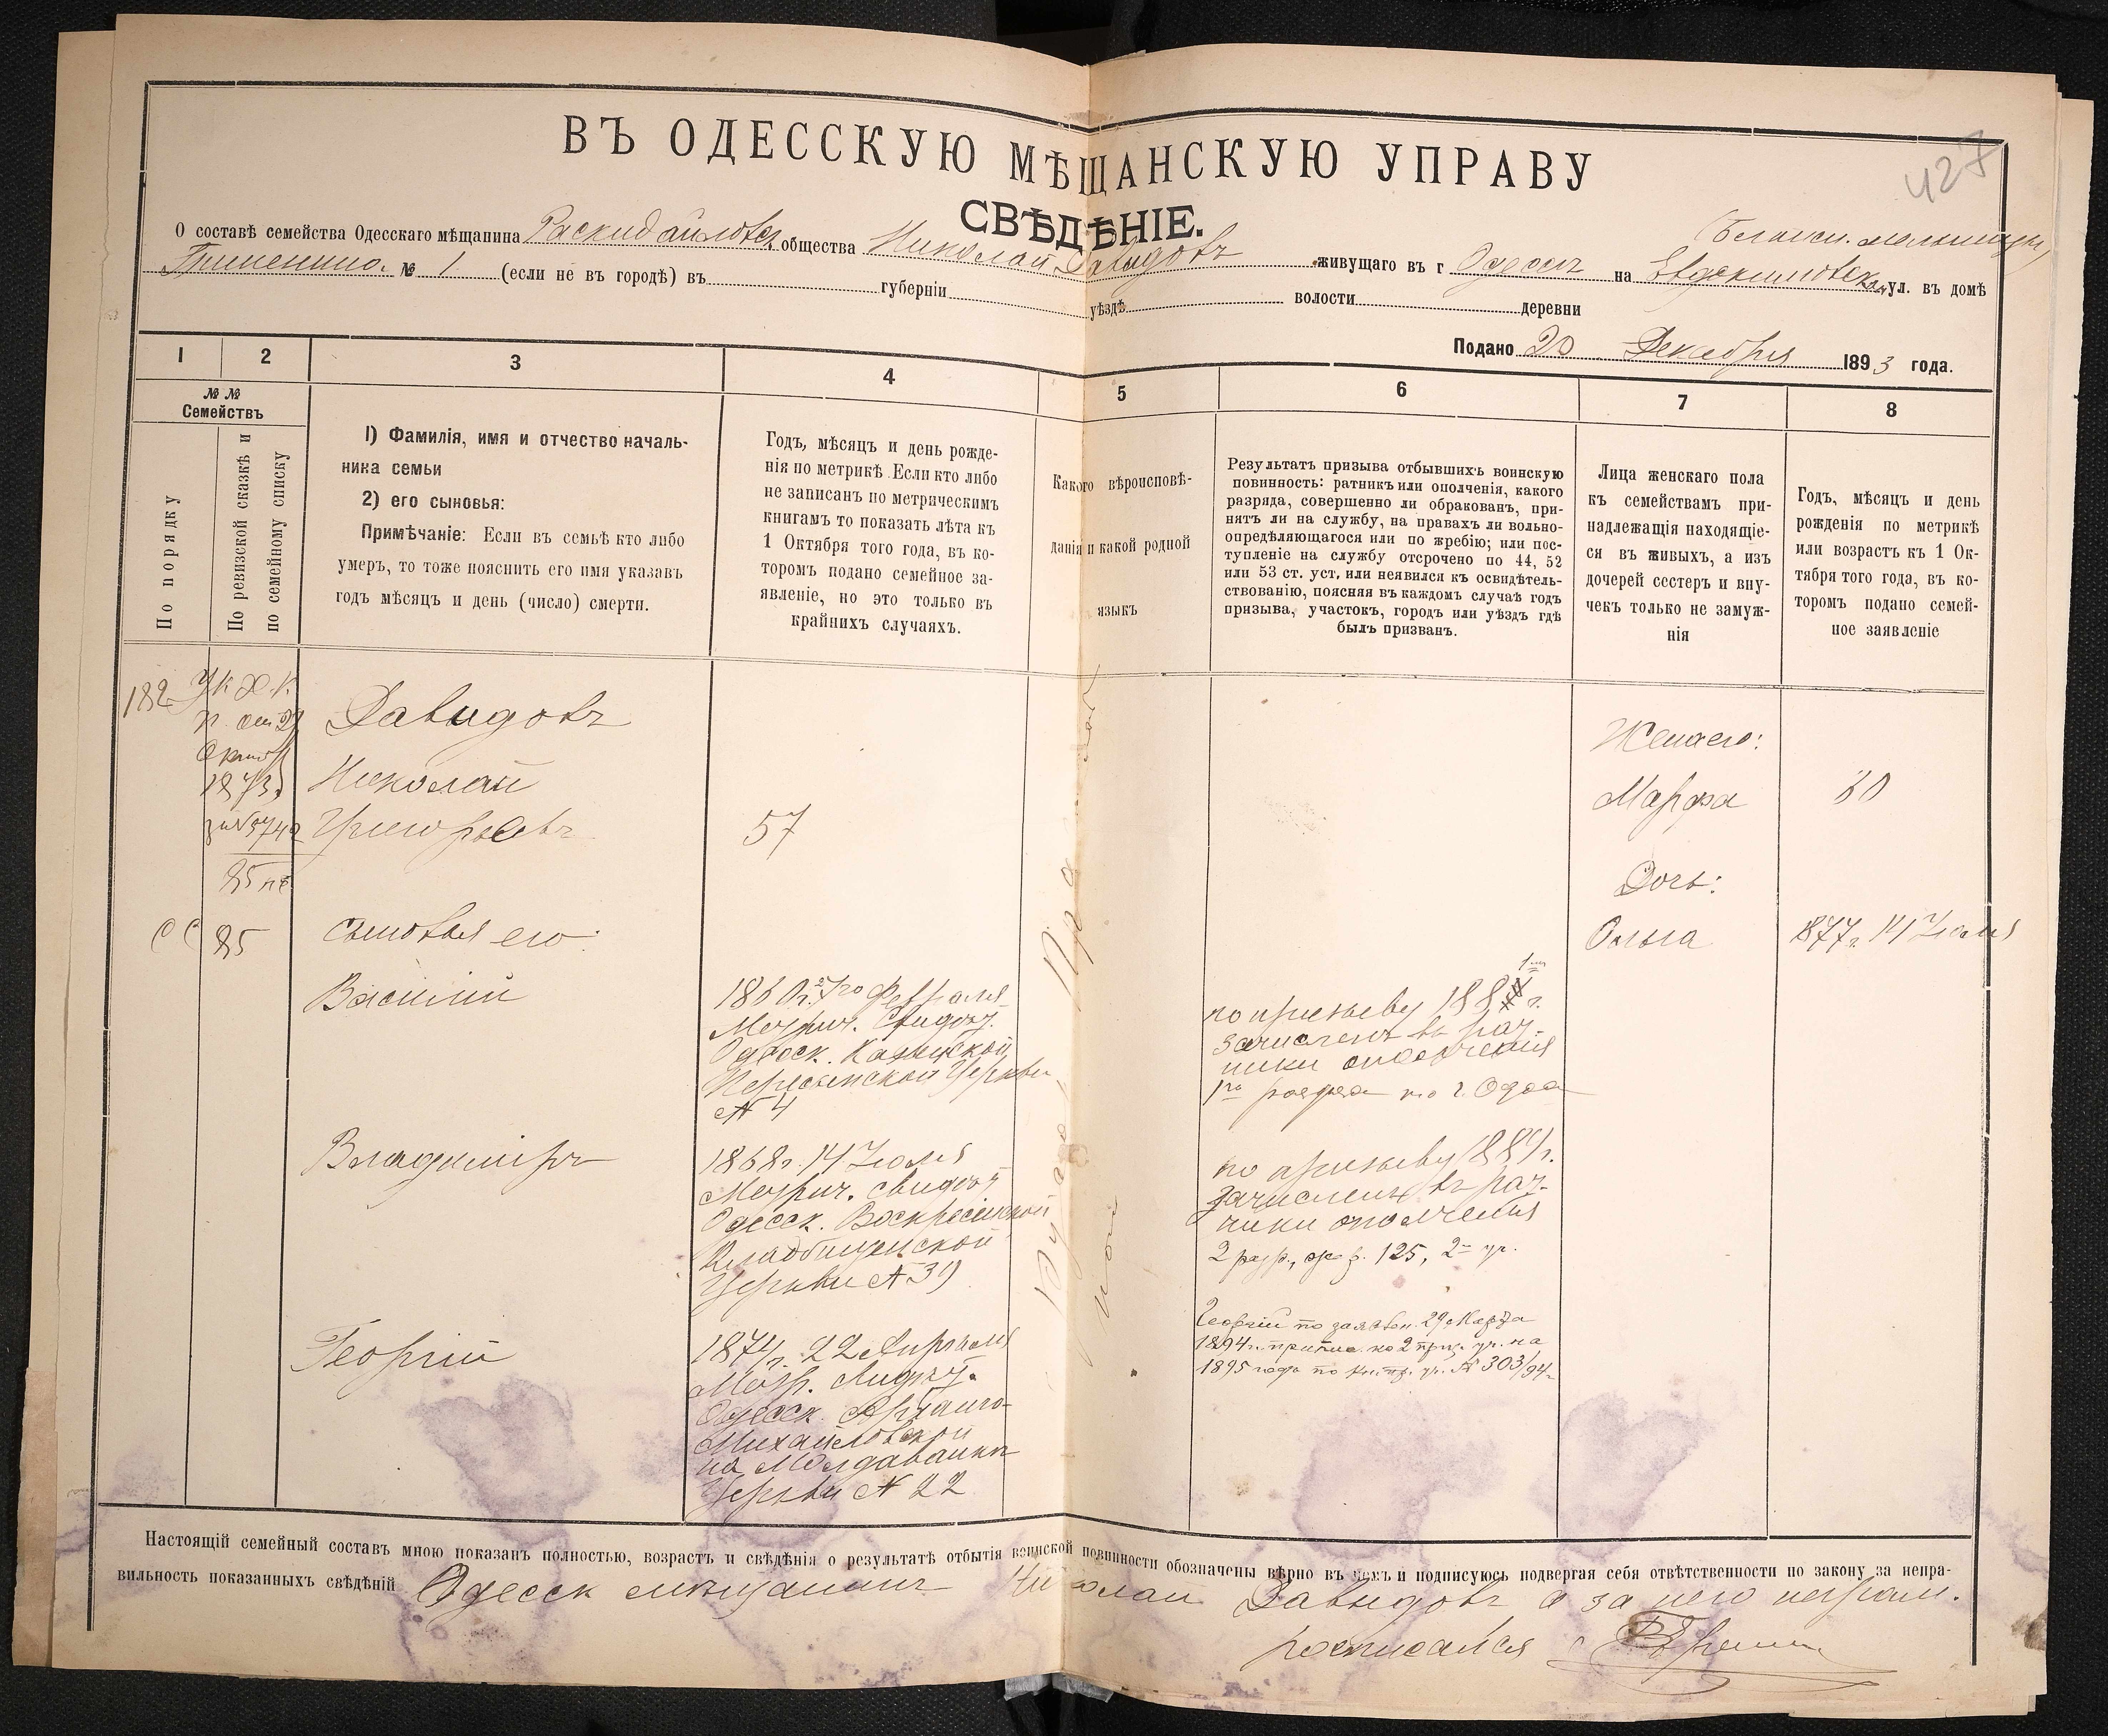 427
ВЪ ОДЕССКУЮ МѢЩАНСКУЮ УПРАВУ
СВѢДѢНІЕ.
О составѣ семейства Одесскаго мѣщанина Раскидайловск. общества Николай Давыдовъ живущаго въ г Одессѣ на Евдокимовской ул. въ домѣ
№ 1 (если не въ городѣ) въ губерніи уѣздѣ волости деревни
Подано 20 Декабря 1893 года.
1 2 3 4 5 6 7 8
№ № Семействъ
По порядку
По ревизской сказкѣ и по семейному списку
1) Фамилія, имя и отчество началь-
ника семьи
2) его сыновья:
Примѣчаніе: Если въ семьѣ кто либо
умеръ, то тоже пояснить его имя указавъ
годъ мѣсяцъ и день (число) смерти.
Годъ, мѣсяцъ и день рожде-
нія по метрикѣ. Если кто либо
не записанъ по метрическимъ
книгамъ то показать лѣта къ
1 Октября того года, въ ко-
торомъ подано семейное за-
явленіе, но это только въ
крайнихъ случаяхъ.
Какого вѣроисповѣ-
данія и какой родной
языкъ
Результатъ призыва отбывшихъ воинскую
повинность: ратникъ или ополченія, какого
разряда, совершенно ли обракованъ, при-
нятъ ли на службу, на правахъ ли вольно-
опредѣляющагося или по жребію; или пос-
тупленіе на службу отсрочено по 44, 52
или 53 ст. уст, или неявился къ освидѣтель-
ствованію, поясняя въ каждомъ случаѣ годъ
призыва, участокъ, городъ или уѣздъ гдѣ
былъ призванъ.
Лица женскаго пола
къ семействамъ при-
надлежащія находящіе-
ся въ живыхъ, а изъ
дочерей сестеръ и вну-
чекъ только не замуж-
нія
Годъ, мѣсяцъ и день
рожденія по метрикѣ
или возрастъ къ 1 Ок-
тября того года, въ ко-
торомъ подано семей-
ное заявленіе
182
Ук Х. К.
п. от 29
Октяб
1873
за № 5742
85
85
Давыдовъ
Николай
Григорьевъ
57
Жена его:
Марфа
Дочь:
Ольга
1877 г. 14 Іюля
сыновья его:
Василій
1860 г. Февраля
Метрич. Свидѣт.
Одесск. Казанской
Пересыпской Церкви
№ 4
по призыву 188 г.
зачисленъ въ рат-
ники ополченія
1го разряда по г. Одес
Владиміръ
1868 г. 14 Іюля
Метрич. свидѣт
Одесск. Воскресенской
Кладбищенской
Церкви № 39
по призыву 1889 г.
зачисленъ въ рат-
ники ополченія
2 разр., жр. 125, 2 уч.
Георгій
1874 г. 22 Апрѣля
Метр. Свидѣт.
Одесск. Архангело-
Михайловской
на Молдаванкѣ
Церкви № 22
Георгій по заявлен. 29 Марта
1894 г. припис. ко 2 приз. уч. на
1895 года по кн. пр. уч. № 303/94 г.
Православнаго
Настоящій семейный составъ мною показанъ полностью, возрастъ и свѣдѣнія о результатѣ отбытія воинской повинности обозначены вѣрно въ чемъ и подписуюсь подвергая себя отвѣтственности по закону за непра-
вильность показанныхъ свѣдѣній Одесск мѣщанинъ Николай Давыдовъ а за него неграм.
росписался